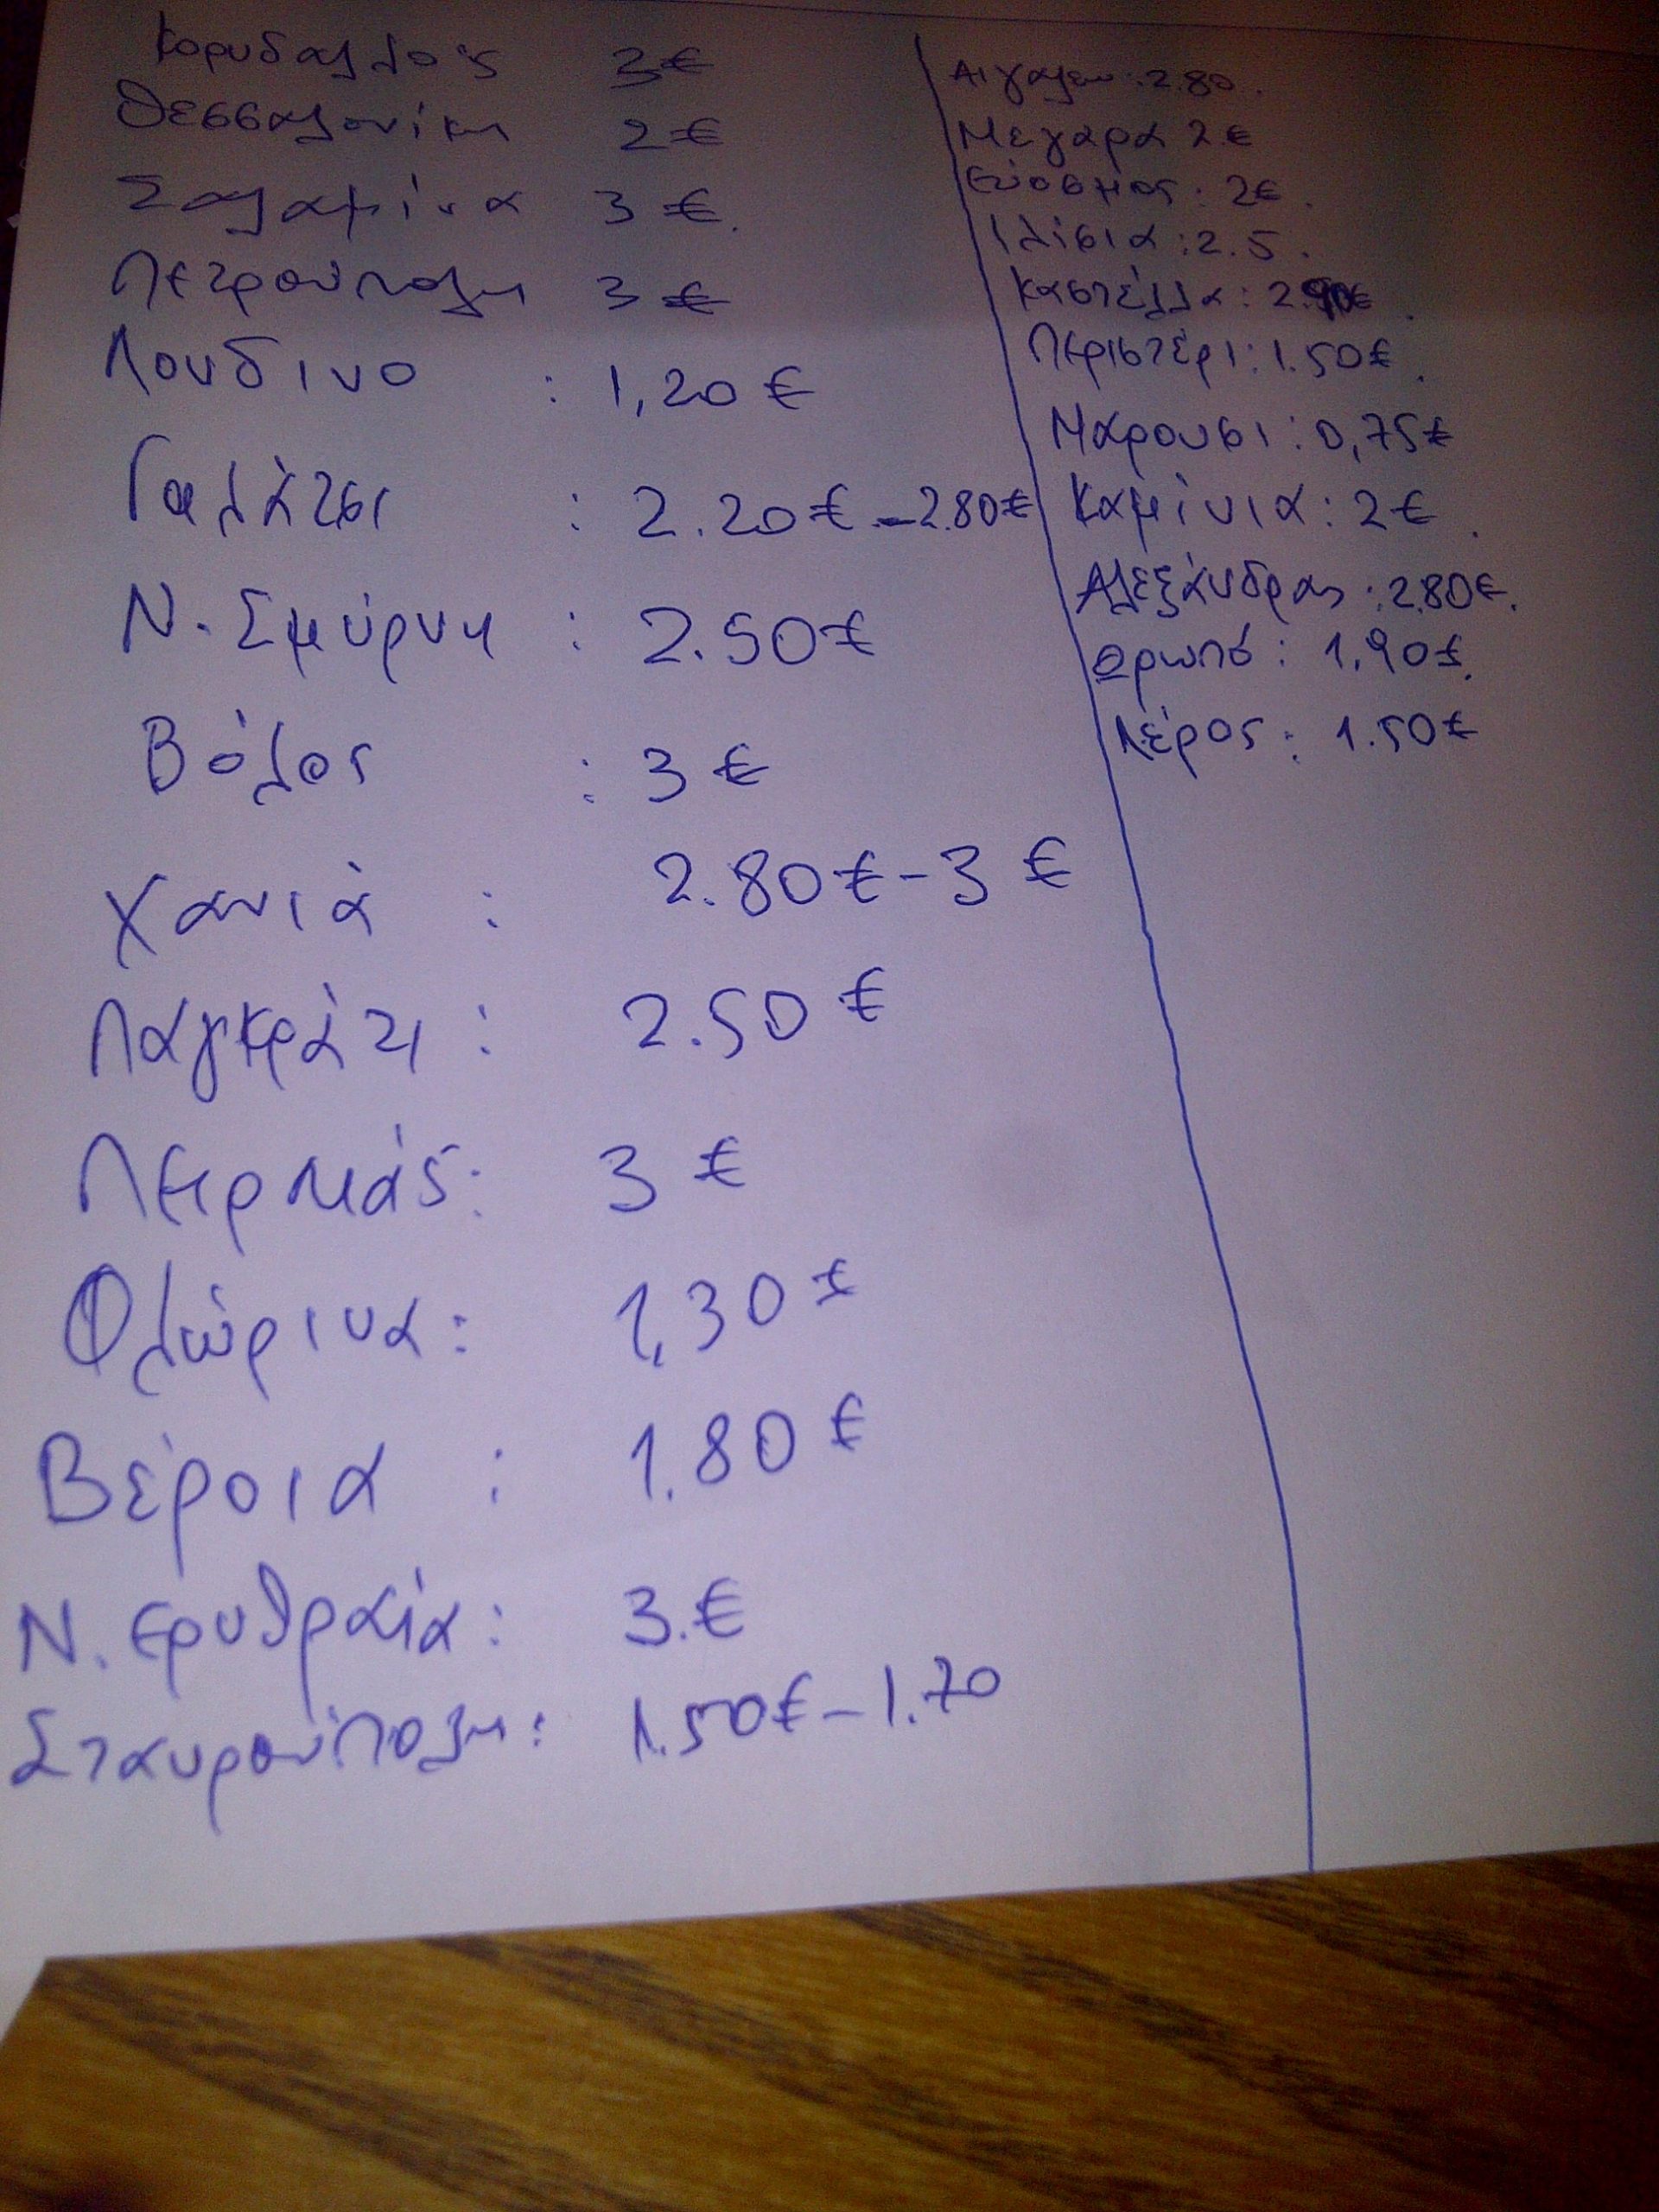 Κορυδαλλός 3€
Θεσσαλονίκη 2€
Σαλαμίνα 3€.
Πετρούπολη 3€
Λονδίνο : 1,20€
Γαλάτσι : 2.20€ - 2.80€
Ν. Σμύρνη : 2.50€
Βόλος : 3€
Χανιά : 2.80€ - 3€
Παγκράτι : 2.50€
Πειραιάς: 3€
Φλώρινα: 1,30€
Βέροια : 1.80€
Ν. Ερυθραία: 3.€
Σταυρούπολη: 1.50€ - 1.70
Αιγάλεω: 2.80.
Μέγαρα 2.€
Εύοσμος: 2€.
Ιλίσια: 2.5.
Καστέλλα: 2.90€.
Περιστέρι: 1.50€.
Μαρούσι: 0,75€
Καμίνια: 2€.
Αλεξάνδρας: 2.80€.
Ωρωπό: 1,90€.
Λέρος: 1.50€